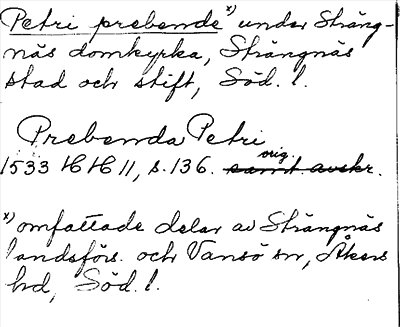 Petri prebende x) under Sträng-
näs domkyrka, Strängnäs
stad och stift, Söd. l.
Prebenda Petri
orig.
1533 HH 11, s. 136. samt avskr.
x) omfattade delar av Strängnäs
landsförs. och Vansö sn, Åkers
hd, Söd. l.